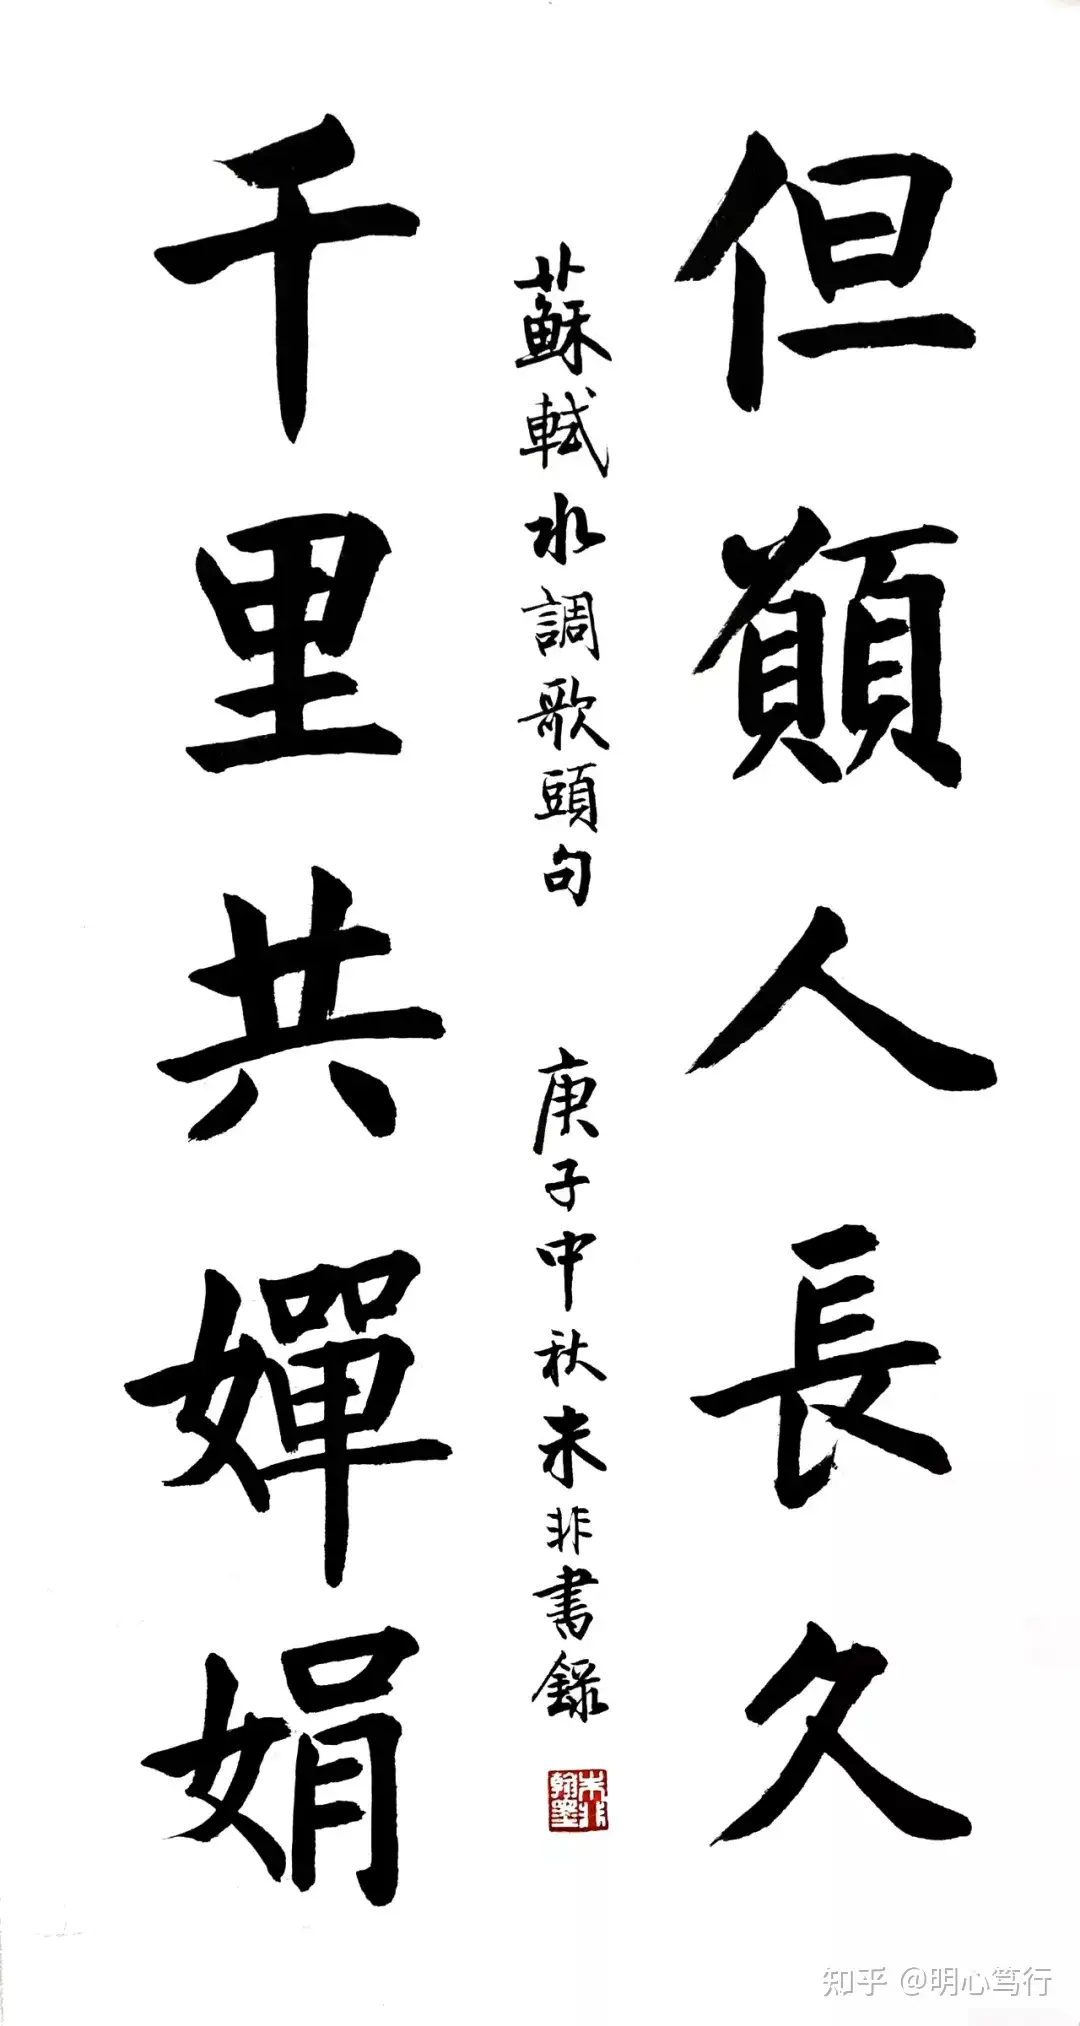 但願人長久
蘇軾水調歌頭句 庚子中秋未非書錄
千里共嬋娟
未非
翰墨
知乎 @明心笃行